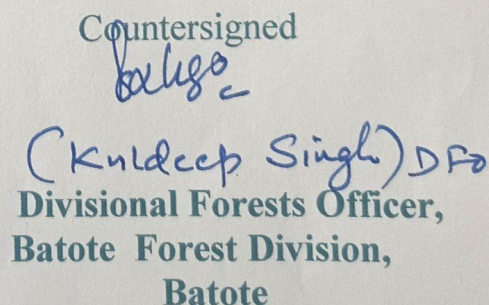 Countersigned
(Kuldeep Singh) DFO
Divisional Forests Officer,
Batote Forest Division,
Batote